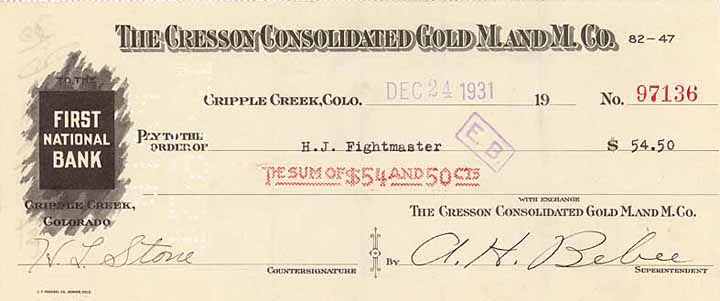 THE CRESSON CONSOLIDATED GOLD M. AND M. CO. 82-47
TO THE
FIRST
NATIONAL
BANK
CRIPPLE CREEK,
COLORADO
CRIPPLE CREEK, COLO. DEC 24 1931 19 No. 97136
PAY TO THE
ORDER OF H.J. Fightmaster $ 54.50
E. B.
THE SUM OF $54 AND 50 CTS
WITH EXCHANGE
THE CRESSON CONSOLIDATED GOLD M. AND M. CO.
W. L. Stone
COUNTERSIGNATURE
BY A. H. Bebee
SUPERINTENDENT